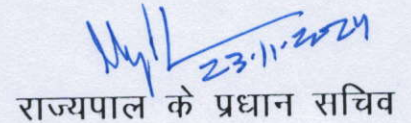 23.11.2024
राज्यपाल के प्रधान सचिव